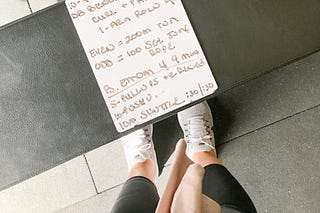 CURL +
1-ARM ROW
EVEN = 200m RUN
ODD = 100 SGL JUMP
ROPE
B. EMOM 4 9 MINS
5-PULLUPS
10 PUSHU
10M SHUTTLE :30/:30